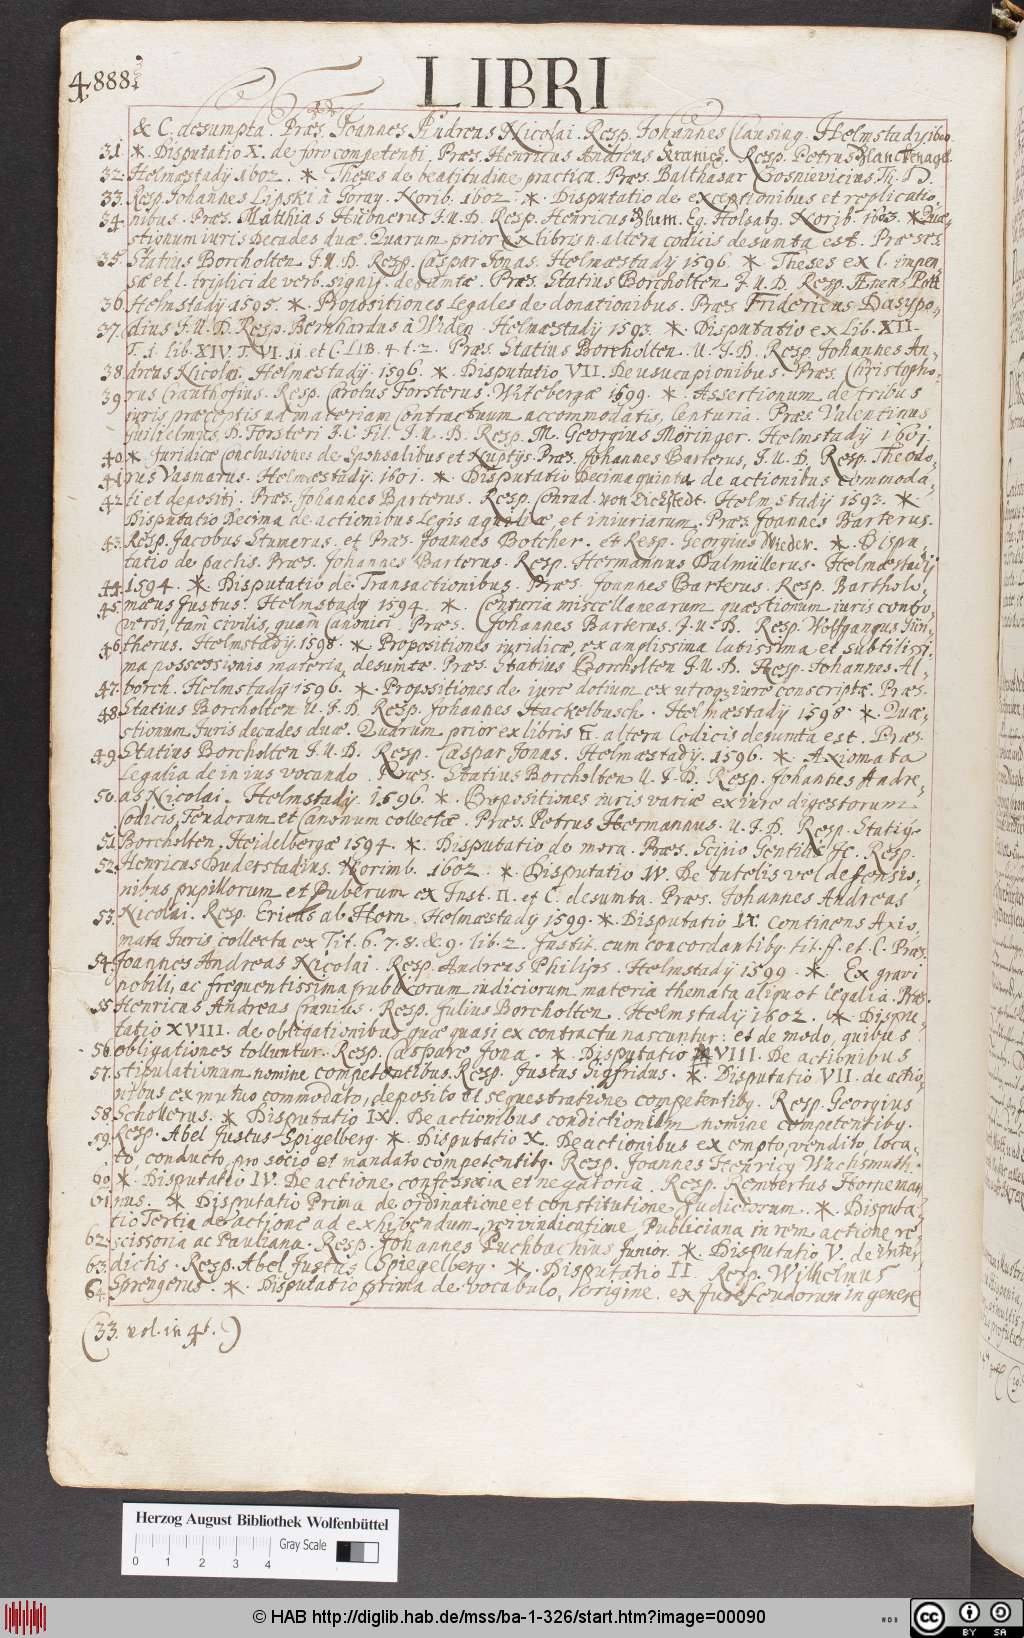 4888
LIBRI
& C. desumpta. Præs. Joannes Andreas Nicolai. Resp. Johannes Clausing. Helmstadij
31. * Disputatio X. de foro competenti, Præs. Henricus Andreas Kranich. Resp. Petrus Blanckenagel
32. Helmæstadij 1602. * Theses de beatitudine practica. Præs. Balthasar Th. D.
33. Resp. Johannes Lipski à Goray. Norib. 1602. * Disputatio de exceptionibus et replicatio-
34. nibus. Præs. Matthias Hübnerus J.U.D. Resp. Henricus Blum. Eq. Holsatq. Norib. 1603. * Quæ-
stionum iuris Decades duæ. Quarum prior ex libris n. altera codicis desumta est. Præses
35. Statius Borcholten J.U.D. Resp. Caspar Jonas. Helmæstadij 1596. * Theses ex l. impen-
sæ et l. triplici de verb. signif. desumtæ. Præs. Statius Borcholten J.U.D. Resp. Pott
36. Helmstadij 1595. * Propositiones legales de donationibus. Præs Fridericus Dasypo-
37. dius J.U.D. Resp. Bernhardus à Widen. Helmæstadij 1593. * Disputatio ex Lib. XII.
T. 1. lib. XIV. T. VI. 11 et C. LIB. 4 t. 2. Præs. Statius Borcholten. U.J.D. Resp. Johannes An-
38. dreas Nicolai. Helmæstadij 1596. * Disputatio VII. De usucapionibus. Præs. Christopho-
39. rus Crauthofius. Resp. Carolus Forsterus. Witebergæ 1599. * Assertionum de tribus
iuris præceptis ad materiam Contractuum accommodatis, Centuria. Præs. Valentinus
Guilielmus, D. Forsteri J.C. Fil. J.U.D. Resp. M. Georgius Möringer. Helmstadij 1601.
40. * Juridicæ Conclusiones de Sponsalibus et Nuptijs. Præs. Johannes Barterus, J.U.D. Resp. Theodo-
41. rus Vasmarus. Helmæstadij. 1601. * Disputatio Decimaquinta de actionibus Commoda-
42. ti et depositi. Præs. Johannes Barterus. Resp. Conrad. von Dickstedt. Helmstadij 1593. *
Disputatio Decima de actionibus Legis aquiliæ et iniuriarum. Præs. Joannes Barterus.
43. Resp. Jacobus Stumerus. et Præs. Joannes Botcher. et Resp. Georgius Wieder. * Dispu-
tatio de pactis. Præs. Johannes Barterus. Resp. Hermannus Dalmüllerus. Helmæstadij
44. 1594. * Disputatio de Transactionibus. Præs. Joannes Barterus. Resp. Bartholo-
45. mæus Gustus. Helmstadij 1594. * Centuria miscellanearum quæstionum iuris contro-
versi, tam civilis, quam Canonici. Præs. Johannes Barterus. J.U.D. Resp. Wolfgangus Gün-
46. therus. Helmstadij. 1598. * Propositiones iuridicæ, ex amplissima latissima et subtilissi-
ma possessionis materia, desumtæ. Præs. Statius Borcholten J.U.D. Resp. Johannes. Al-
47. borch. Helmstadij 1596. * Propositiones de iure dotium ex utroq; iure conscriptæ. Præs.
48. Statius Borcholten U.J.D. Resp. Johannes Hackelbusch. Helmæstadij 1598. * Quæ-
stionum Juris decades duæ. Quarum prior ex libris Π. altera Codicis desumta est. Præs.
49. Statius Borcholten J.U.D. Resp. Caspar Jonas. Helmæstadij. 1596. * Axiomata
legalia de in ius vocando. Præs. Statius Borcholten U.J.D. Resp. Johannes Andre-
50. as Nicolai. Helmstadij. 1596. * Propositiones iuris variæ ex iure digestorum
Codicis, Feudorum et Canonum collectæ. Præs. Petrus Hermannus. U.J.D. Resp. Statiq
51. Borcholten. Heidelbergæ 1594. * Disputatio de mora. Præs. Scipio Gentilis JC. Resp.
52. Henricus Duderstadius. Norimb. 1602. * Disputatio IV. De tutelis vel defensio-
nibus pupillorum et Puberum ex Inst. Π. et C. desumta. Præs. Johannes Andreas
53. Nicolai. Resp. Ericus ab Horn. Helmæstadij 1599. * Disputatio IX. Continens Axio-
mata Juris collecta ex Tit. 6. 7. 8. & 9. lib. 2. Justit. cum concordantibq tit. ff. et C. Præs.
54. Joannes Andreas Nicolai. Resp. Andreas Philips. Helmstadij 1599. * Ex gravi
nobili, ac frequentissima iudiciorum materia themata aliquot legalia. Præs.
55. Henricus Andreas Cranius. Resp. Julius Borcholten. Helmstadij 1602. * Dispu-
tatio XVIII. de obligationibus quæ quasi ex contractu nascuntur: et de modo, quibus
56. obligationes tolluntur. Resp. Caspare Jona. * Disputatio VIII. De actionibus
57. stipulationum nomine competentibus. Resp. Justus Sigfridus. * Disputatio VII. de actio-
nibus ex mutuo commodato, deposito et sequestratione competentibq. Resp. Georgius
58. Schollerus. * Disputatio IX. De actionibus condictionum nomine competentibq.
59. Resp. Abel Justus Spigelberg. * Disputatio X. De actionibus ex empto, vendito, loca-
to, conducto, pro socio et mandato competentibq. Resp. Joannes Henricq Wachsmuth.
60. * Disputatio IV. De actione confessoria et negatoria. Resp. Rembertus Horneman
61. nus. * Disputatio Prima de ordinatione et constitutione Judiciorum. * Disputa-
tio Tertia de actione ad exhibendum, rei vindicatione, Publiciana in rem actione re-
62. scissoria ac Pauliana. Resp. Johannes Puchbachius Junior. * Disputatio V. de Inter-
63. dictis. Resp. Abel Justus Spiegelberg. * Disputatio II Resp. Wilhelmus
64. Sprengerus. * Disputatio prima de vocabulo, Origine. ex Jure feudorum in genere
(33. vol. in 4t.)
Herzog August Bibliothek Wolfenbüttel
Gray Scale
0 1 2 3 4
© HAB http://diglib.hab.de/mss/ba-1-326/start.htm?image=00090
WDB
cc BY SA